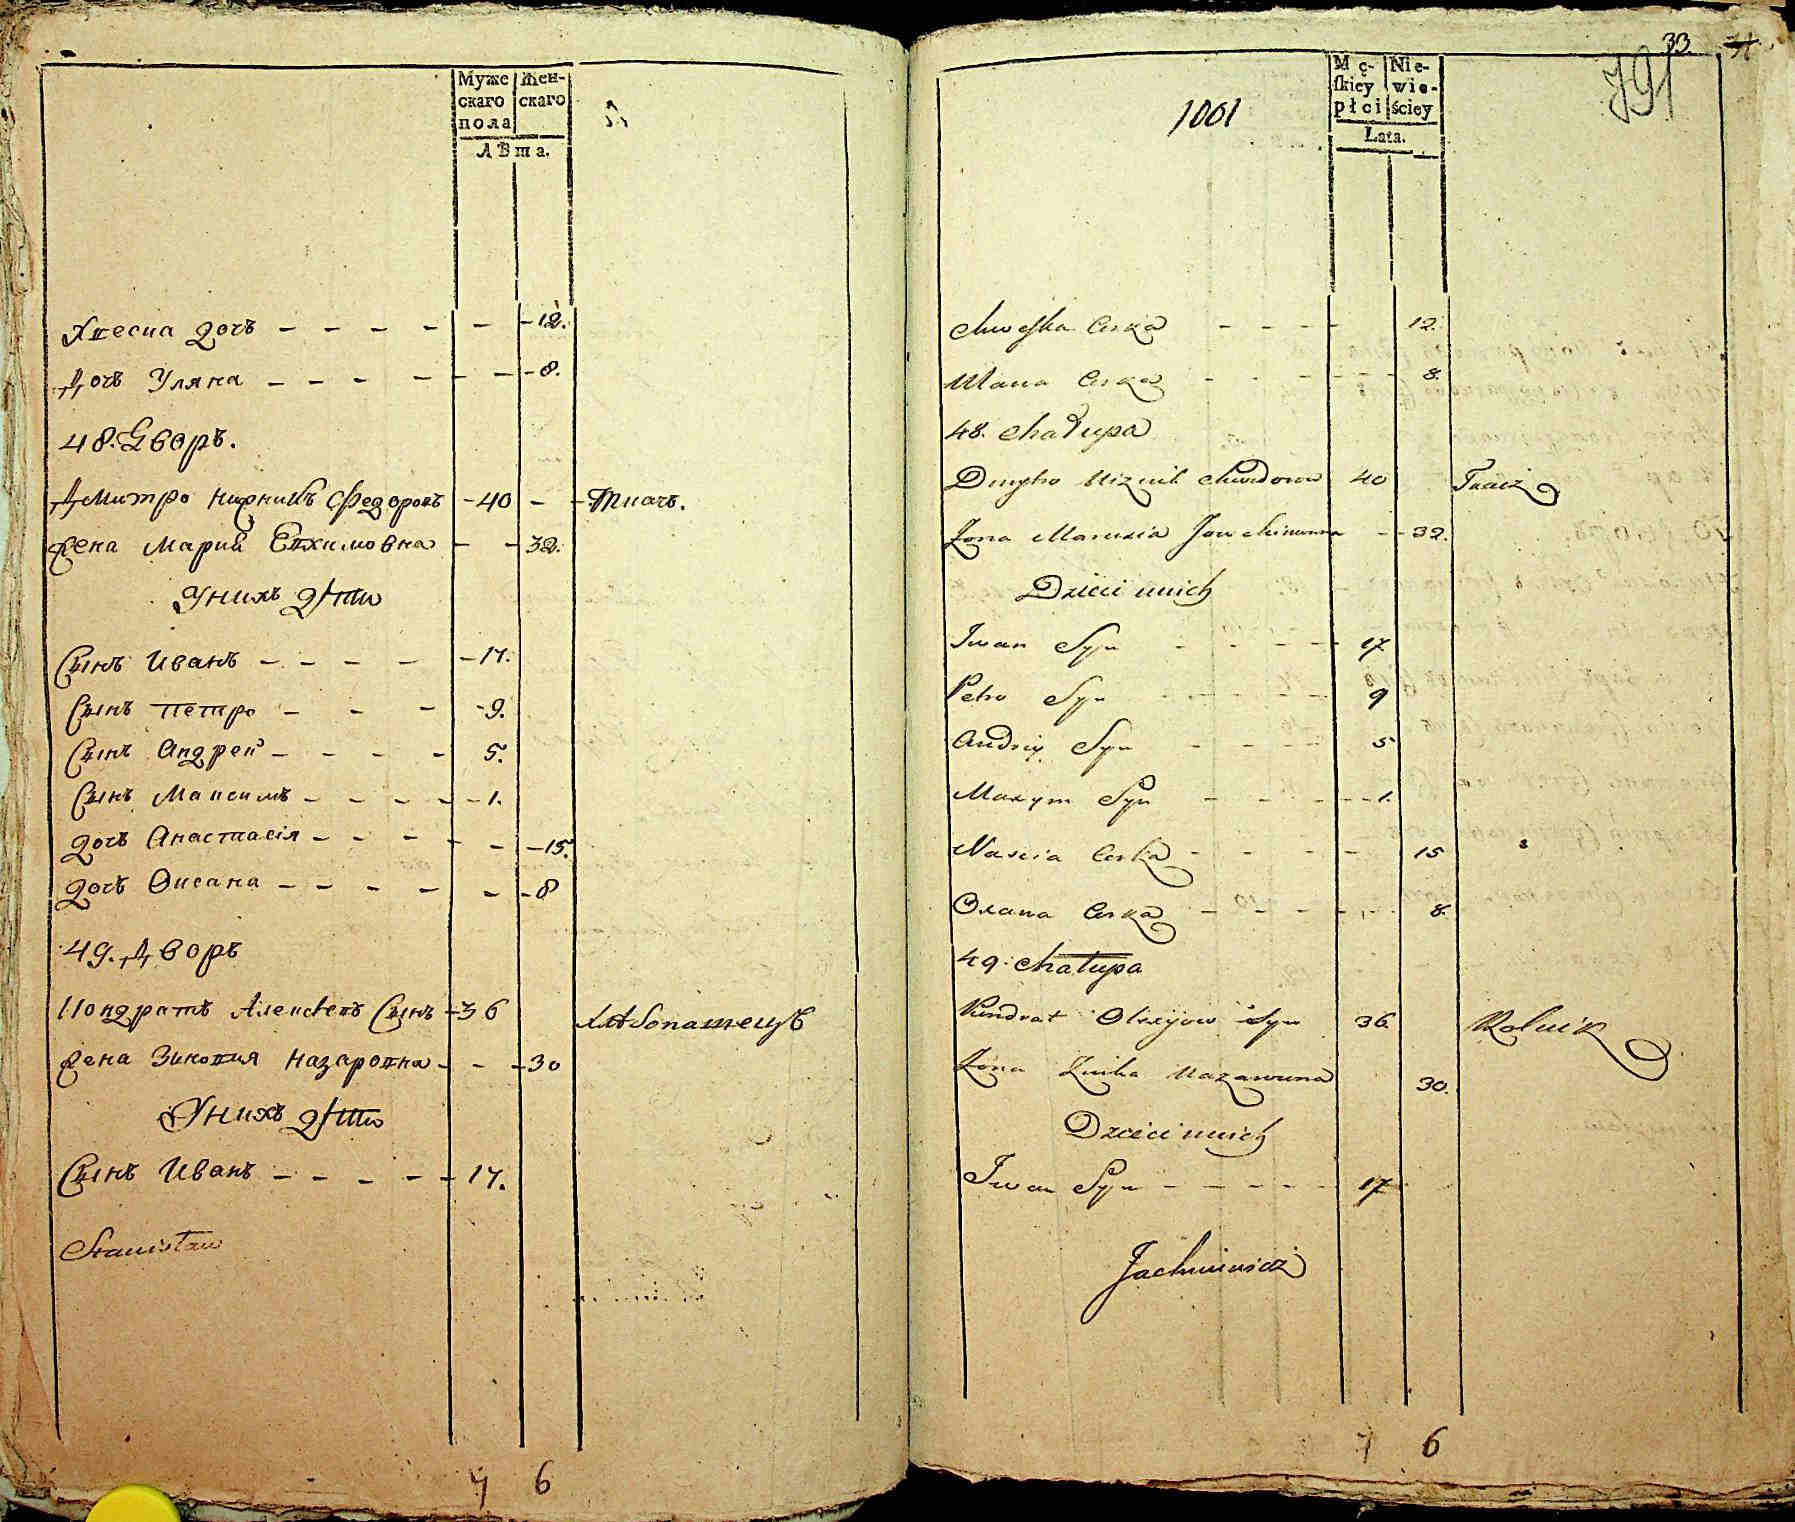 Муже Жен-
скаго скаго
пола
Лѣта.
Хвеска дочъ - - - - - - 12.
Дочъ Уляна - - - - - - 8.
48. Дворъ.
Дмитро Нижникъ Федоровъ - 40 - - Ткачъ.
Жена Мария Евхимовна - - 32.
Унихъ дѣти
Сынъ Иванъ - - - - - 17.
Сынъ Петро - - - - 9.
Сынъ Андрей - - - - 5.
Сынъ Максимъ - - - - - 1.
дочъ Анастасія - - - - - - 15.
дочъ Оксана - - - - - - 8
49. Дворъ
Кондратъ Алексѣевъ Сынъ - 36 хлѣбопашецъ
Жена Зиновия Назаровна - - - 30
Унихъ дѣти
Сынъ Иванъ - - - - - 17.
Stanisław
7 6
33.
791
1001
Mę- Nie-
skiey wie-
płci ściey
Lata.
Chweska Curka - - - - 12.
Ulana Curka - - - - - - 8.
48. Chałupa
Dmytro Niznik Chwedorow 40 Tkacz
Żona Marusia Jowchimowna - - 32.
Dzieci unich
Iwan Syn - - - - 17
Petro Syn - - - - 9
Andriy Syn - - - - 5
Maxym Syn - - - - - - 1.
Nascia Curka - - - - 15
Oxana Curka - - - - - - 8.
49. Chałupa
Kundrat Olexijow Syn 36. Rolnik
Żona Zinka Nazarowna 30.
Dzieci unich
Iwan Syn - - - - - 17
Jachimowicz
7 6